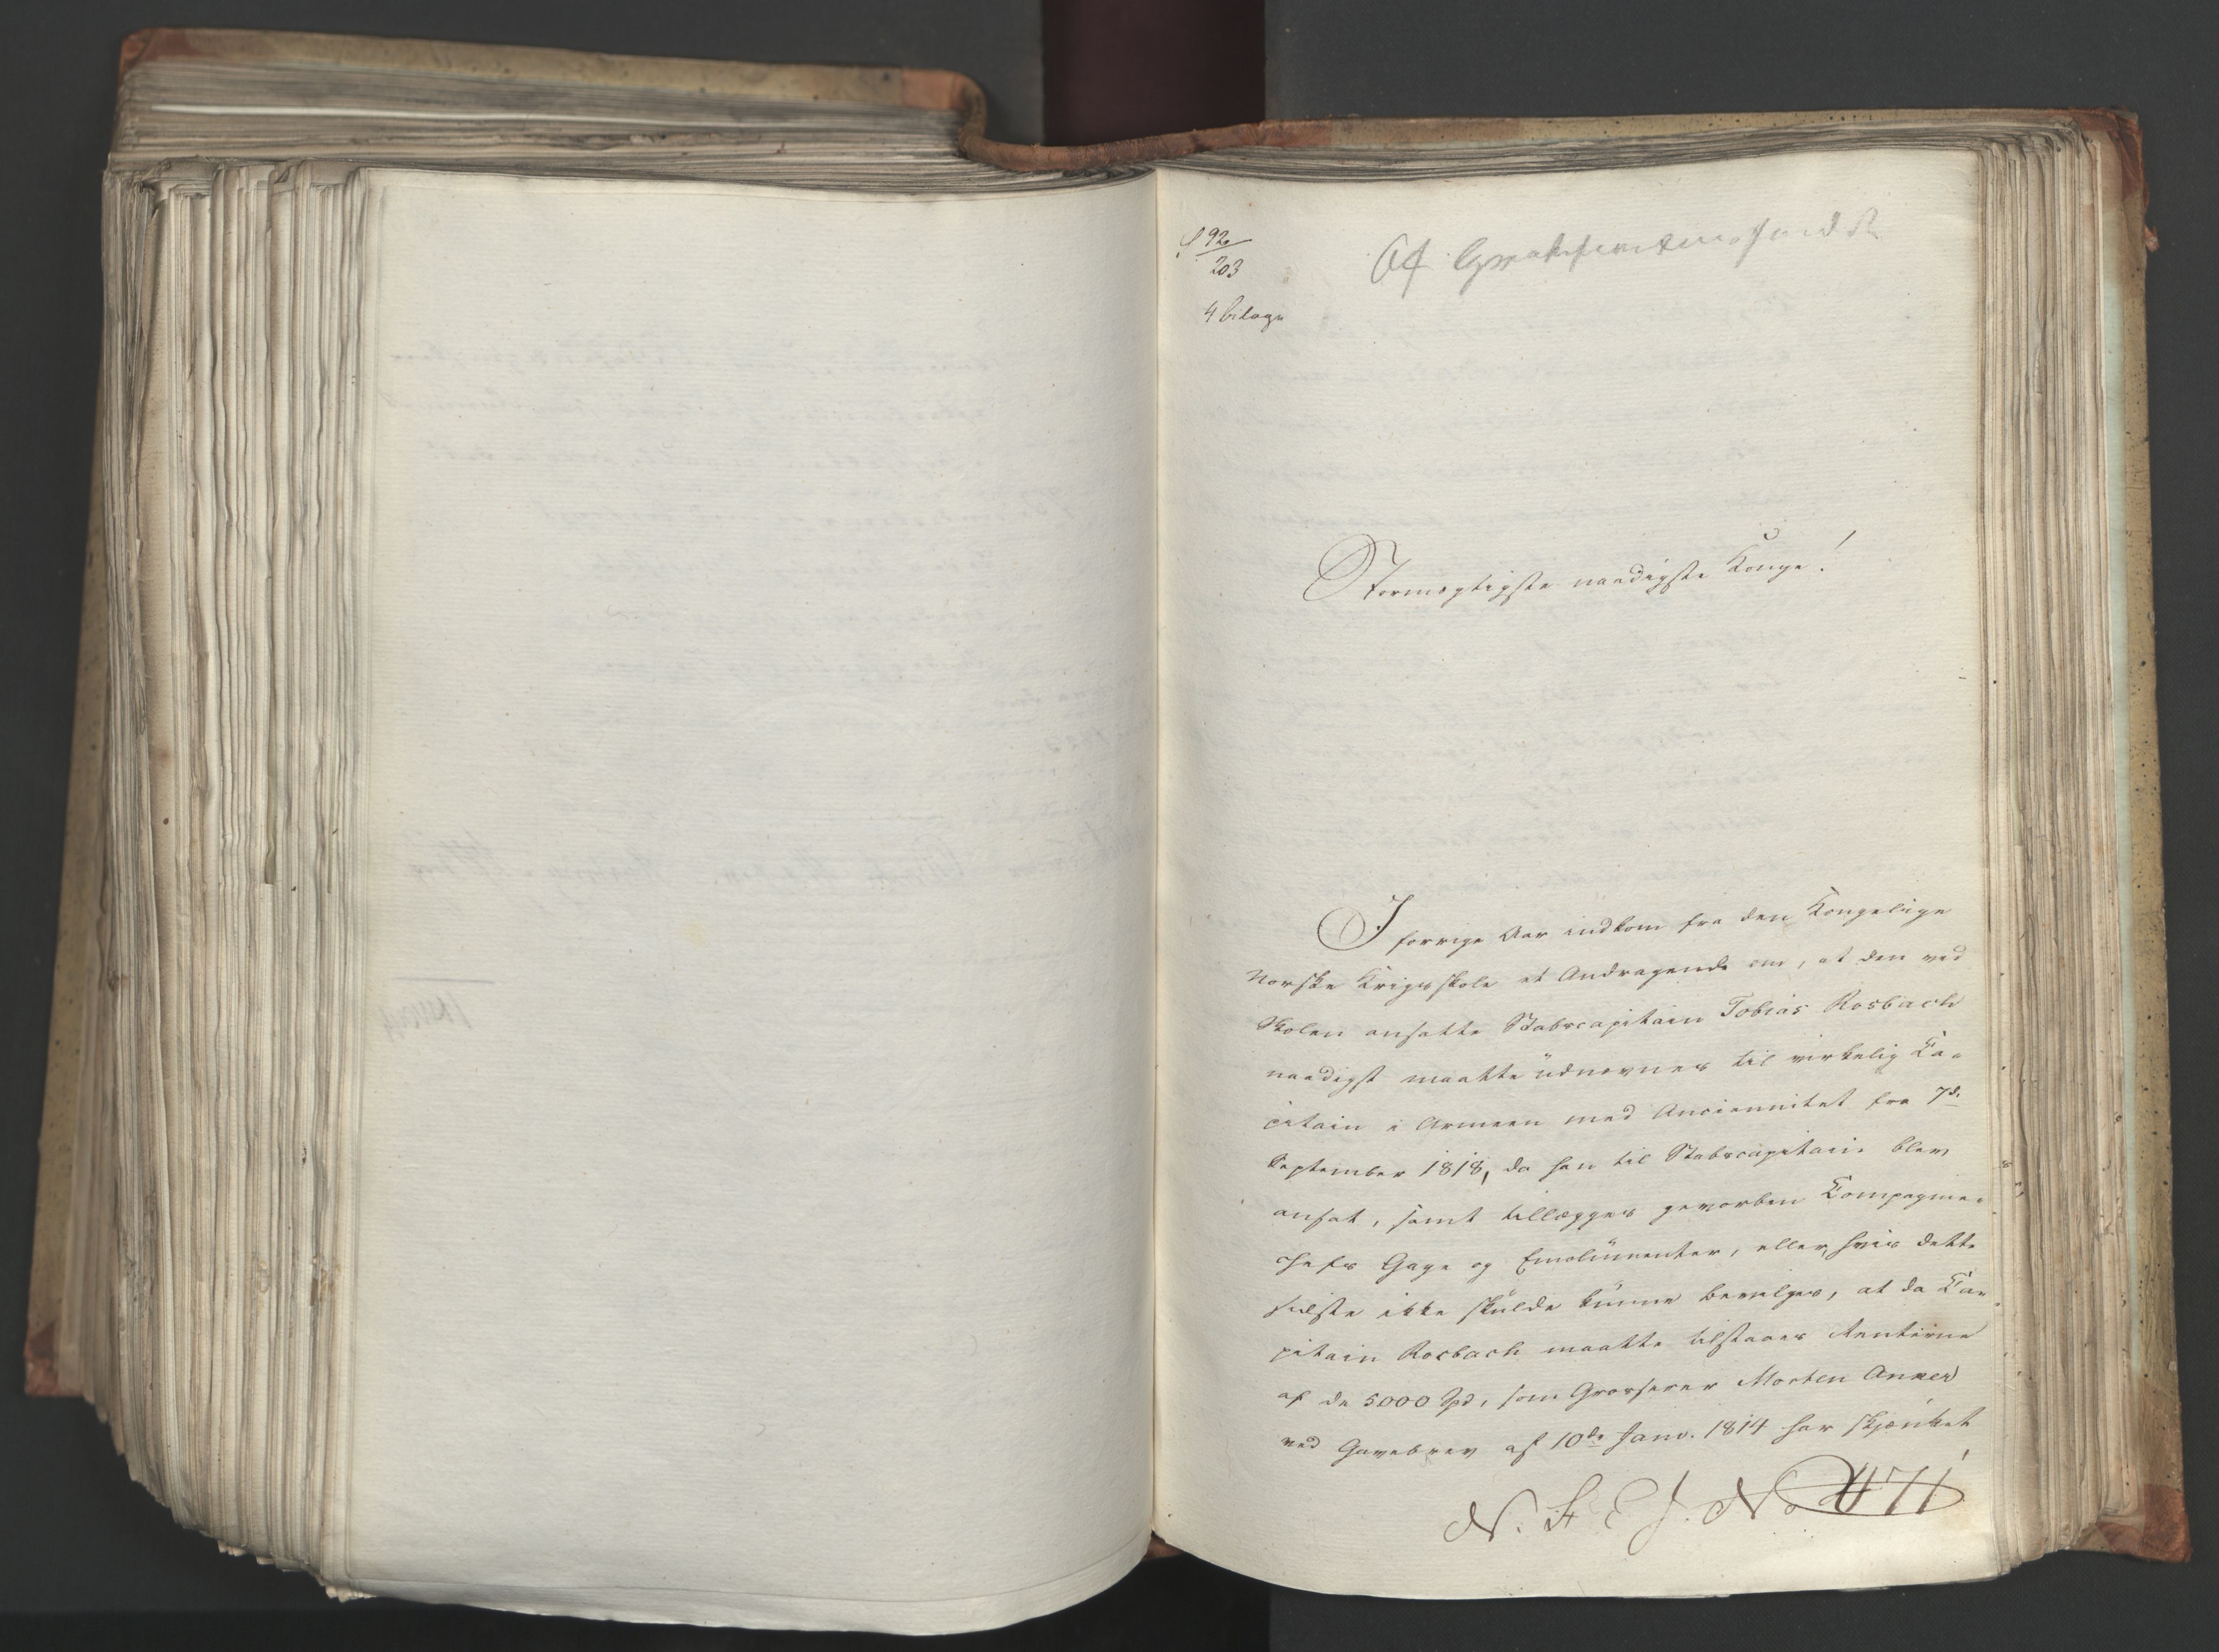 92
203
4 bilage
Af
Stormægtigste naadigste Konge!
I forrige Aar indkom fra den Kongelige
Norske Krigsskole et Andragende om, at den ved
Skolen ansatte Stabscapitain Tobias Rosbach
naadigst maatte udnevnes til virkelig Ca-
pitain i Armeen med Anciennitet fra 7de
September 1818, da han til Stabscapitain blev
ansat, samt tillægges gevorben Compagnie-
chefs Gage og Emolumenter, eller, hvis dette
sidste ikke skulde kunne bevilges, at da Ca-
pitain Rosbach maatte tilstaaes Renterne
af de 5000 Spd, som Grosserer Morten Anker
ved Gavebrev af 10de Janv. 1814 har skjænket